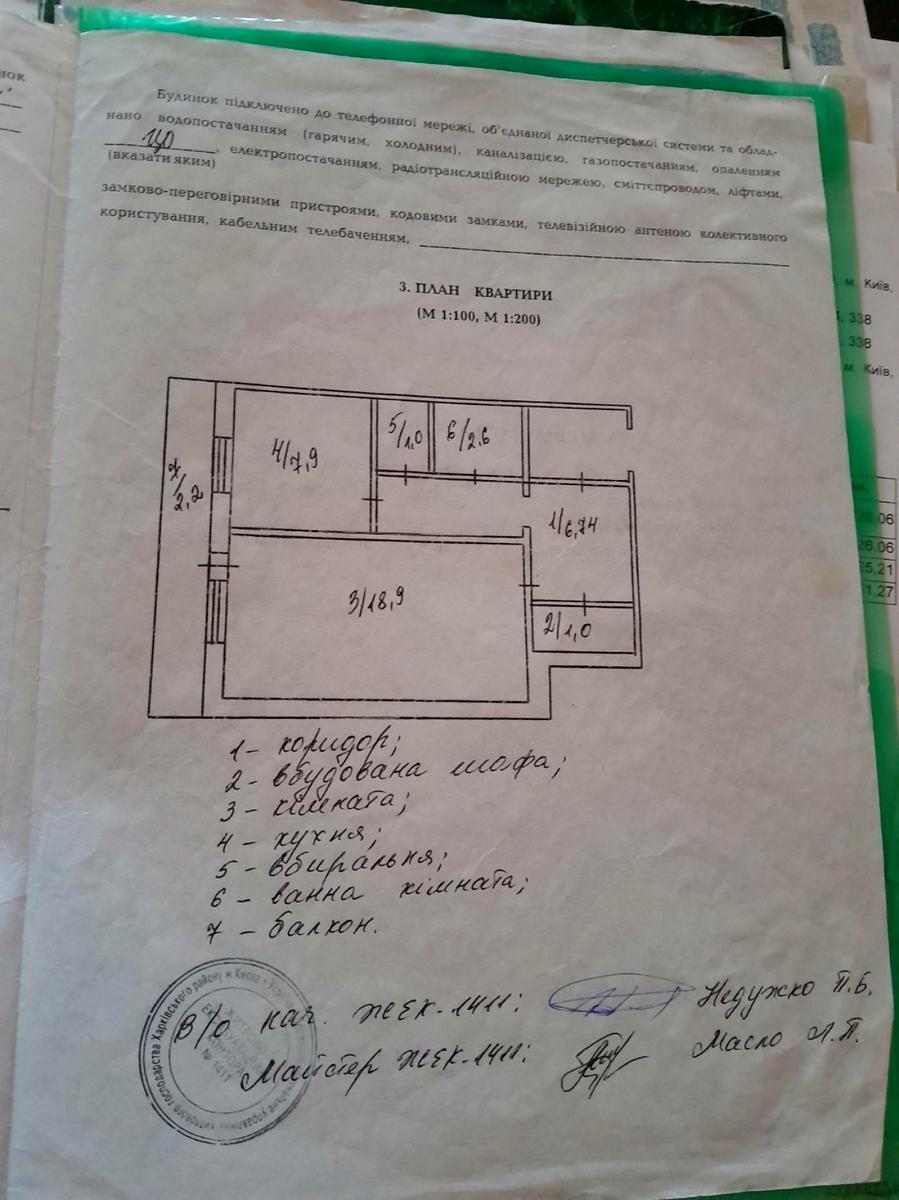 нок
Будинок підключено до телефонної мережі, об'єднаної диспетчерської системи та облад-
нано водопостачанням (гарячим, холодним), каналізацією, газопостачанням, опаленням
ЦО, електропостачанням, радіотрансляційною мережею, сміттєпроводом, ліфтами,
(вказати яким)
замково-переговірними пристроями, кодовими замками, телевізійною антеною колективного
користування, кабельним телебаченням,
3. ПЛАН КВАРТИРИ
(М 1:100, М 1:200)
м. Київ,
338
338
м. Київ,
26,06
26,06
25,21
1,27
4/7,9
5/1,0
6/2,6
7/2,2
1/6,74
3/18,9
2/1,0
1 - коридор;
2 - вбудована шафа;
3 - кімната;
4 - кухня;
5 - вбиральня;
6 - ванна кімната;
7 - балкон.
В/о нач. ЖЕК-1411: Недужко П.Б.
Майстер ЖЕК-1411: Масло Л.П.
господарства Харківського району м. Києва
№ 1411